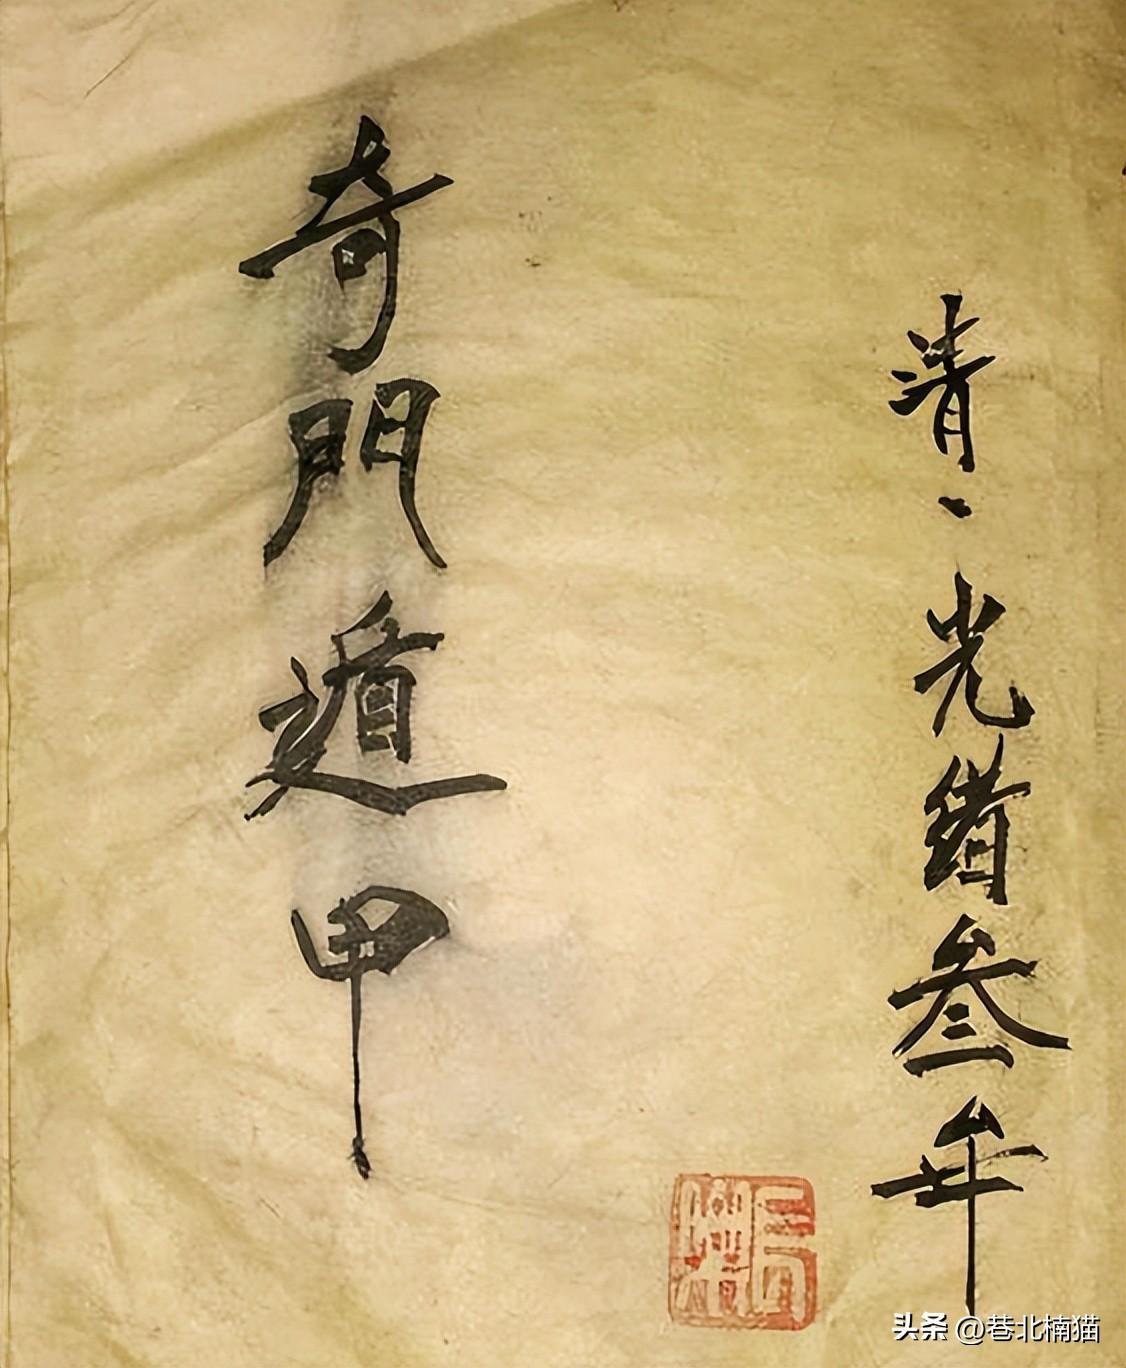 清、光绪叁年
奇門遁甲
头条 @巷北楠猫